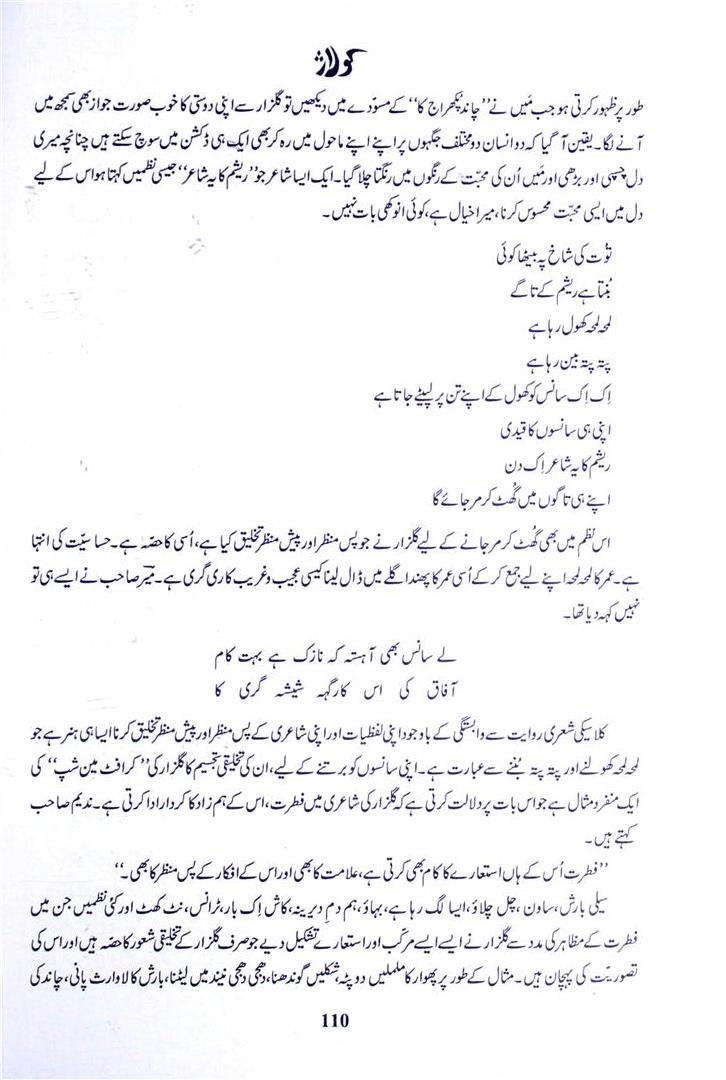 کولاژ
طور پر ظہور کرتی ہو جب مَیں نے ’’چاند پکھراج کا‘‘ کے مسوّدے میں دیکھیں تو گلزار سے اپنی دوستی کا خوب صورت جواز بھی سمجھ میں
آنے لگا۔ یقین آ گیا کہ دو انسان دو مختلف جگہوں پر اپنے اپنے ماحول میں رہ کر بھی ایک ہی ڈکشن میں سوچ سکتے ہیں چنانچہ میری
دل چسپی اور بڑھی اور مَیں اُن کی محبّت کے رنگوں میں رنگتا چلا گیا۔ ایک ایسا شاعر جو ’’ریشم کا یہ شاعر‘‘ جیسی نظمیں کہتا ہو اس کے لیے
دل میں ایسی محبّت محسوس کرنا، میرا خیال ہے، کوئی انوکھی بات نہیں۔
تُوت کی شاخ پہ بیٹھا کوئی
بُنتا ہے ریشم کے تاگے
لمحہ لمحہ کھول رہا ہے
پتہ پتہ بین رہا ہے
اِک اِک سانس کو کھول کے اپنے تن پر لپیٹے جاتا ہے
اپنی ہی سانسوں کا قیدی
ریشم کا یہ شاعر اِک دن
اپنے ہی تاگوں میں گھُٹ کر مر جائے گا
اس نظم میں بھی گھُٹ کر مر جانے کے لیے گلزار نے جو پس منظر اور پیش منظر تخلیق کیا ہے، اُسی کا حصّہ ہے۔ حساسیّت کی انتہا
ہے۔ عمر کا لمحہ لمحہ اپنے لیے جمع کر کے اُسی عمر کا پھندا گلے میں ڈال لینا کیسی عجیب و غریب کاری گری ہے۔ میرؔ صاحب نے ایسے ہی تو
نہیں کہہ دیا تھا۔
لے سانس بھی آہستہ کہ نازک ہے بہت کام
آفاق کی اس کارگہہِ شیشہ گری کا
کلاسیکی شعری روایت سے وابستگی کے باوجود اپنی لفظیات اور اپنی شاعری کے پس منظر اور پیش منظر تخلیق کرنا ایسا ہی ہنر ہے جو
لمحہ لمحہ کھولنے اور پتہ پتہ بُننے سے عبارت ہے۔ اپنی سانسوں کو برتنے کے لیے، ان کی تخلیقی تجسیم کا گلزار کی ’’کرافٹ مین شپ‘‘ کی
ایک منفرد مثال ہے جو اس بات پر دلالت کرتی ہے کہ گلزار کی شاعری میں فطرت، اس کے ہم زاد کا کردار ادا کرتی ہے۔ ندیم صاحب
کہتے ہیں۔
’’فطرت اُس کے ہاں استعارے کا کام بھی کرتی ہے، علامت کا بھی اور اس کے افکار کے پس منظر کا بھی۔‘‘
سیلی بارش، ساون، چل چلاؤ، ایسا لگ رہا ہے، بہاؤ، ہم دمِ دیرینہ، کاش اِک بار، ٹرانس، نٹ کھٹ اور کئی نظمیں جن میں
فطرت کے مظاہر کی مدد سے گلزار نے ایسے ایسے مرکّب اور استعارے تشکیل دیے جو صرف گلزار کے تخلیقی شعور کا حصّہ ہیں اور اس کی
تصوریّت کی پہچان ہیں۔ مثال کے طور پر پھوار کا ململیں دوپٹہ، شکلیں گوندھنا، دھجی دھجی نیند میں لیٹنا، بارش کا لاوارث پانی، چاند کی
110